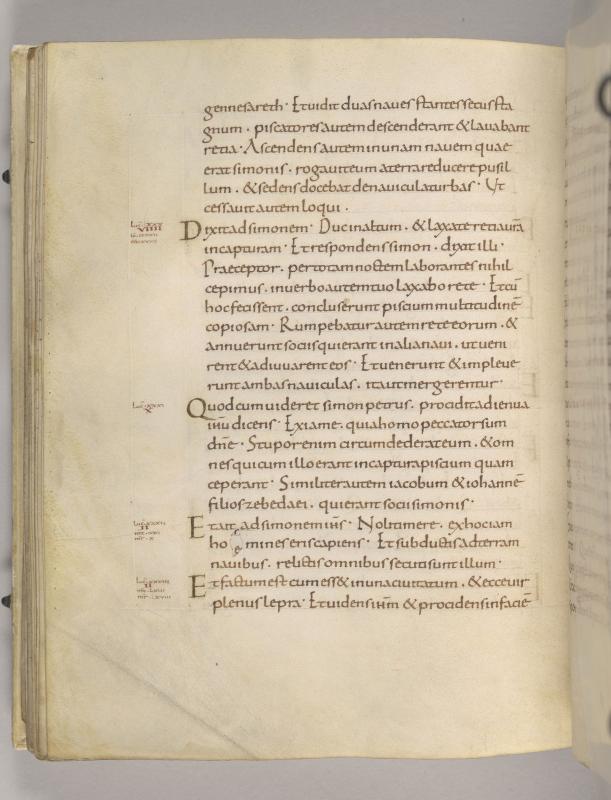 gennesareth· Et uidit duas naues stantes secus sta
gnum · piscatores autem descenderant & lauabant
retia · Ascendens autem in unam nauem quae
erat simonis · rogauit eum a terra reducere pusil
lum · & sedens docebat de nauicula turbas · Ut
cessauit autem loqui ·
Dixit ad simonem · Duc in altum · & laxate retia ur̄a
in capturam · Et respondens simon · dixit illi ·
Praeceptor · per totam noctem laborantes nihil
cepimus · in uerbo autem tuo laxabo rete · Et cū
hoc fecissent · concluserunt piscium multitudinē
copiosam · Rumpebatur autem rete eorum · &
annuerunt sociis qui erant in alia naui · ut ueni
rent & adiuuarent eos · Et uenerunt & impleue
runt ambas nauiculas · ita ut mergerentur ·
Quod cum uideret simon petrus · procidit ad ienua
iħu dicens · Exi a me · quia homo peccator sum
dn̄e · Stupor enim circumdederat eum · & om
nes qui cum illo erant in captura piscium quam
ceperant · Similiter autem iacobum & iohannē
filios zebedaei · qui erant socii simonis ·
Et ait ad simonem iħs · Noli timere · ex hoc iam
ho mines eris capiens · Et subductis ad terram
nauibus · relictis omnibus secuti sunt illum ·
Et factum est cum ess& in una ciuitatum · & ecce uir
plenus lepra · Et uidens iħm & procidens in faciē